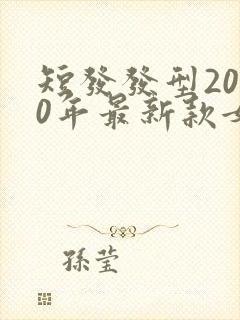 短發發型20
0年最新款女
孫瑩